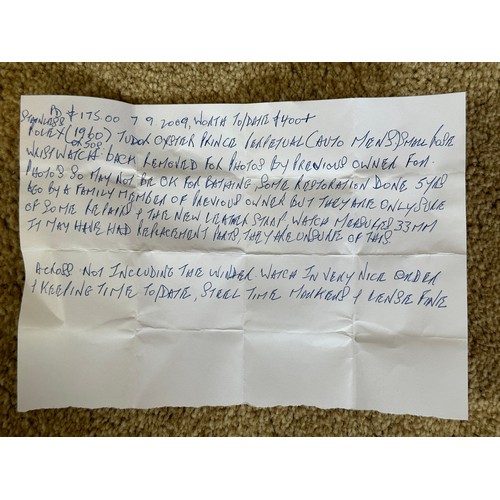 PD $175.00 7 9.2009, WORTH TO/DATE $400+
STAINLESS
ROLEX (1960) TUDOR OYSTER PRINCE PERPETUAL (AUTO MENS) SMALL ROSE
OR 50S
WRISTWATCH BACK REMOVED FOR PHOTOS BY PREVIOUS OWNER FOR
PHOTOS SO MAY NOT BE OK FOR BATHING, SOME RESTORATION DONE 5 YRS
AGO BY A FAMILY MEMBER OF PREVIOUS OWNER BUT THEY ARE ONLY SURE
OF SOME REPAIRS & THE NEW LEATHER STRAP, WATCH MEASURES 33MM
IT MAY HAVE HAD REPLACEMENT PARTS, THEY ARE UNSURE OF THIS.
ACROSS NOT INCLUDING THE WINDER. WATCH IN VERY NICE ORDER
& KEEPING TIME TO/DATE, STEEL TIME MARKERS & LENSE FINE